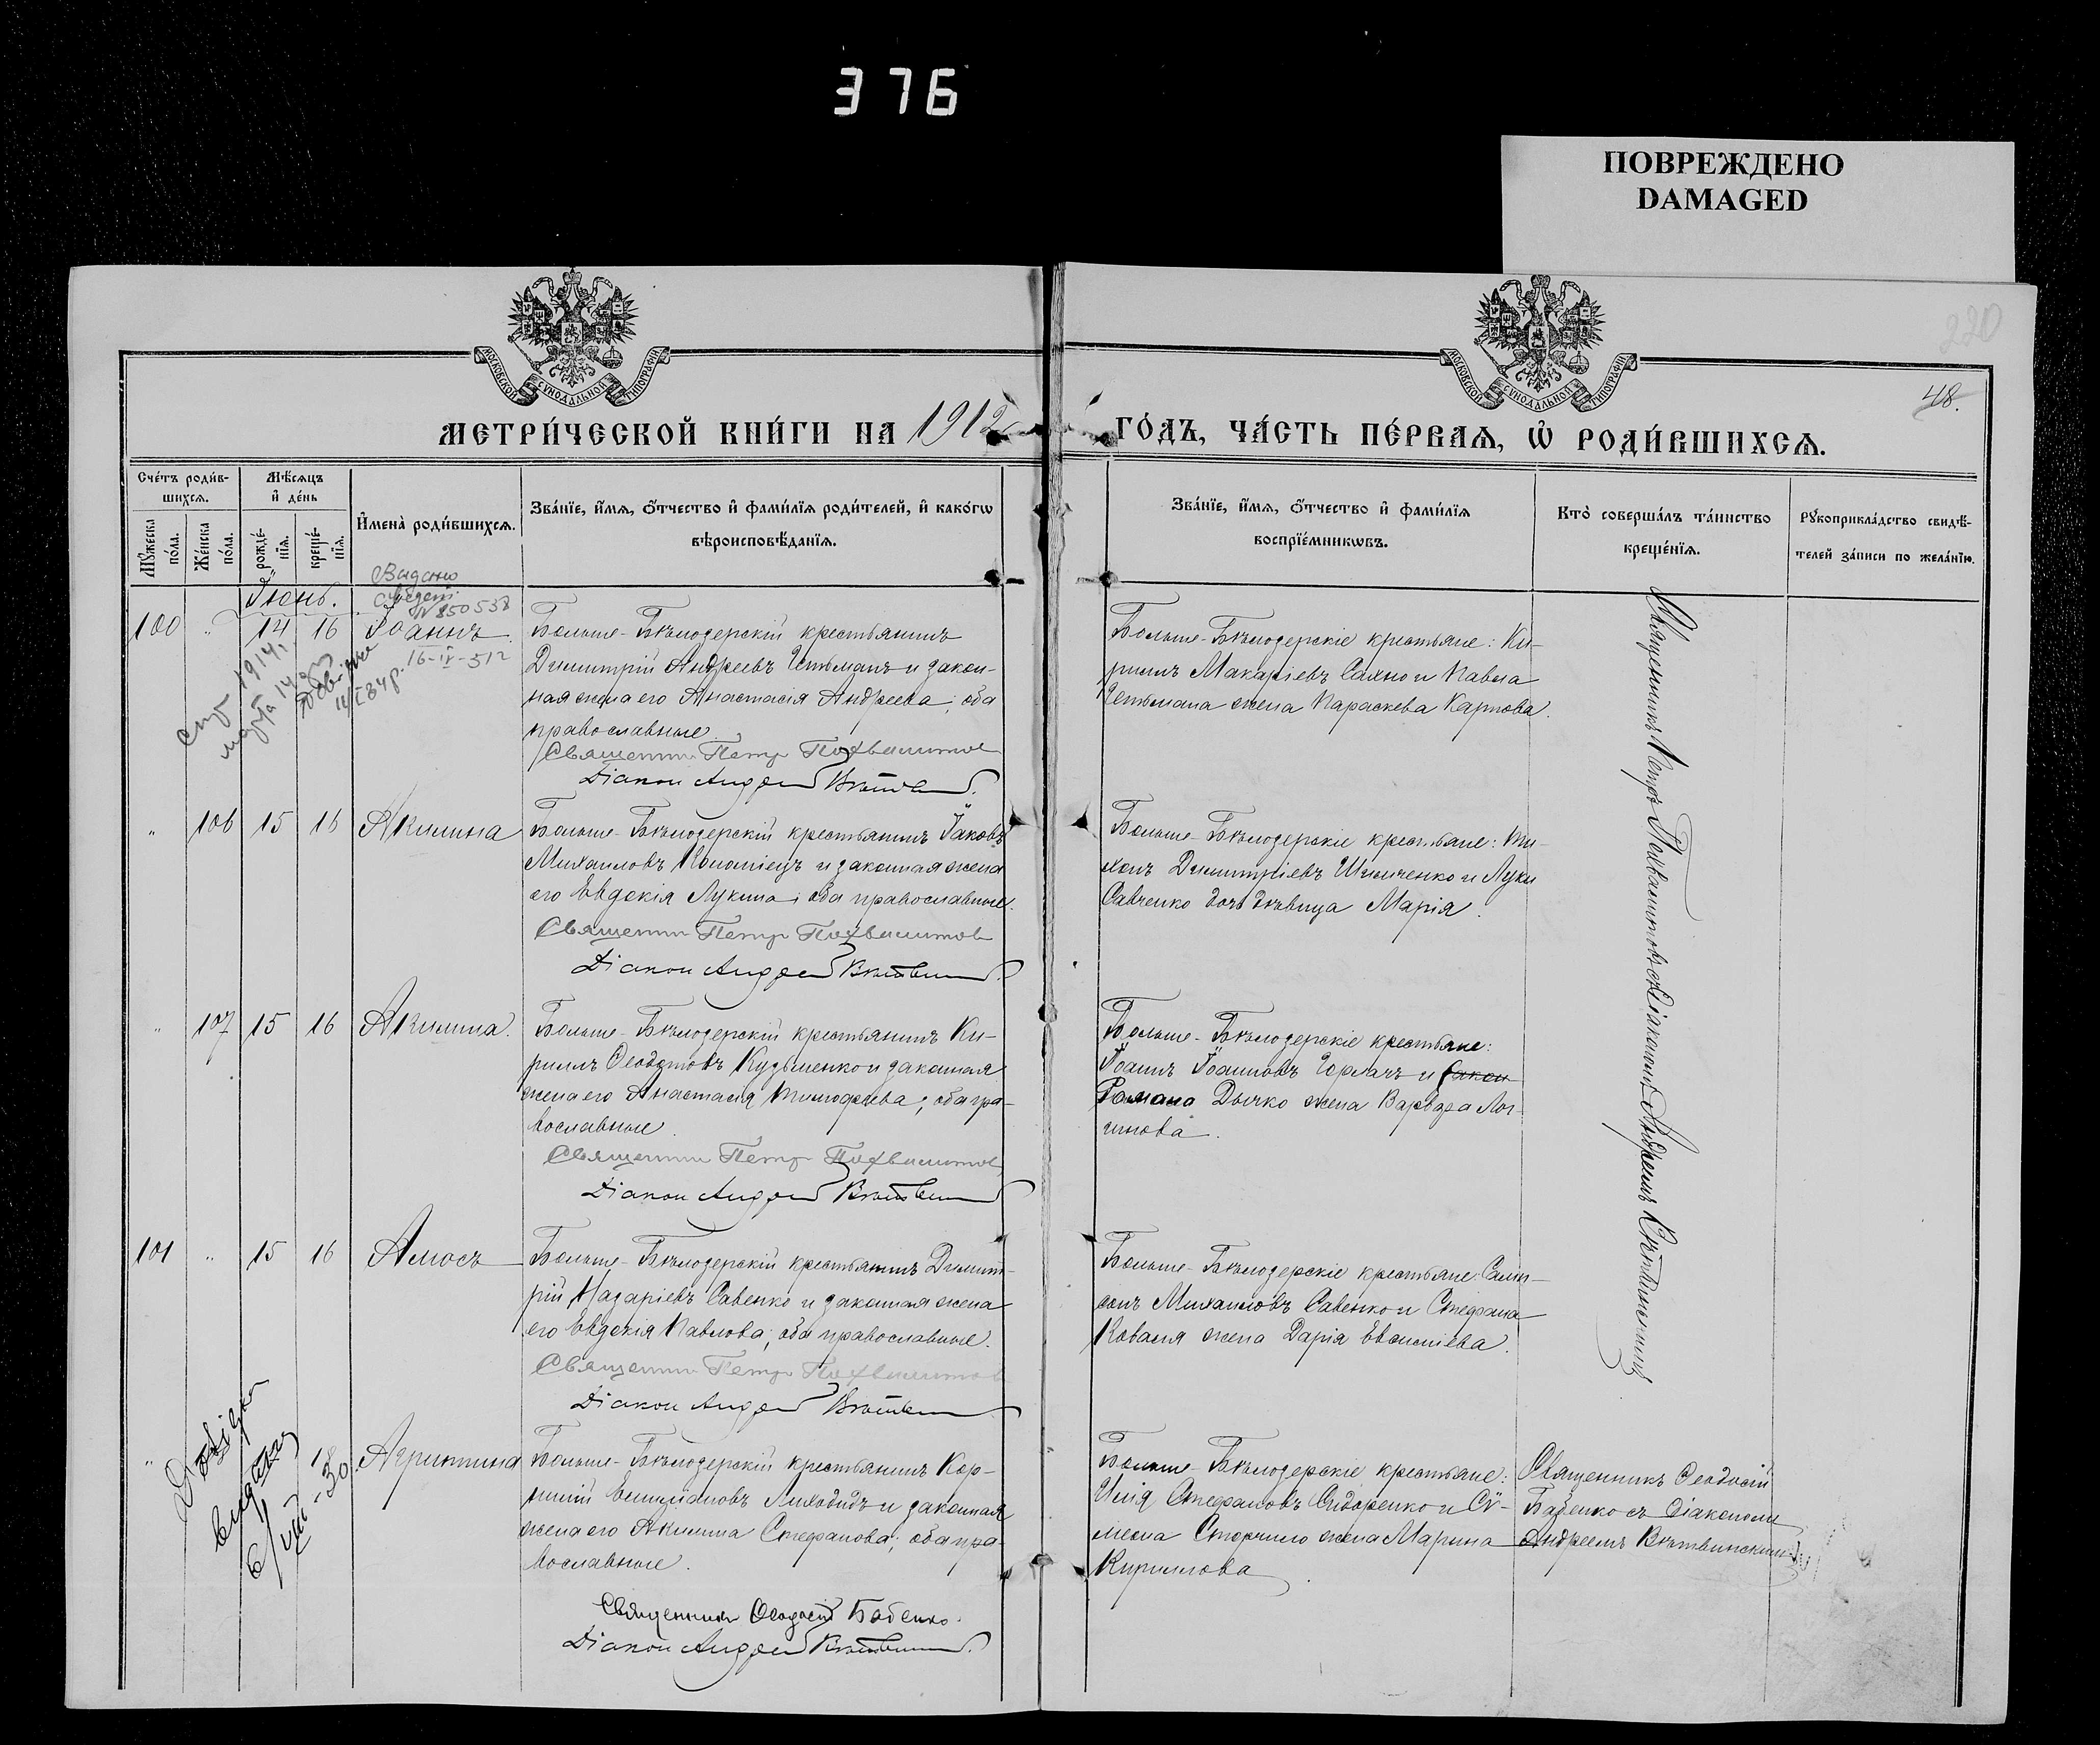 376
ПОВРЕЖДЕНО
DAMAGED
220
48.
МОСКОВСКОЙ СѴНОДАЛЬНОЙ ТИПОГРАФІИ
МОСКОВСКОЙ СѴНОДАЛЬНОЙ ТИПОГРАФІИ
МЕТРИ́ЧЕСКОЙ КНИ́ГИ НА 1912
ГО́ДЪ, ЧА́СТЬ ПЕ́РВАѦ, Ѡ҆ РОДИ́ВШИХСѦ.
Сче́тъ роди́в-
шихсѧ.
Мѣ́сѧцъ
и҆ де́нь
Мꙋ́жеска по́ла.
Же́нска по́ла.
рожде́-
нїѧ.
креще́-
нїѧ.
И҆мена̀ роди́вшихсѧ.
Зва́нїе, и҆́мѧ, ѻ҆́тчество и҆ фами́лїѧ роди́телей, и҆ како́гѡ
вѣроисповѣ́данїѧ.
Зва́нїе, и҆́мѧ, ѻ҆́тчество и҆ фами́лїѧ
воспрїе́мникѡвъ.
Кто̀ соверша́лъ та́инство
креще́нїѧ.
Рꙋкоприкла́дство свидѣ́-
телей за́писи по жела́нїю.
Іюнь.
Выдано
свѣдет.
N 850538
16-IV-51г
100 " 14 16 Іоаннъ
1914
марта
Больше-Бѣлозерскій крестьянинъ
Димитрій Андреевъ Гетьманъ и закон-
ная жена его Анастасія Андреева; оба
православные.
Священник Петр Похвалитов
Діакон Андрей Вѣтвин
Больше-Бѣлозерскіе крестьяне: Ки-
риллъ Макаріевъ Сахно и Павла
Гетьмана жена Параскева Карпова.
Священникъ Петръ Похвалитовъ съ Діакономъ Андреемъ Вѣтвинскимъ
" 106 15 16 Акилина
Больше-Бѣлозерскій крестьянинъ Іаковъ
Михаиловъ Коломіецъ и законная жена
его Евдокія Лукина; оба православные.
Священник Петр Похвалитов
Діакон Андрей Вѣтвин
Больше-Бѣлозерскіе крестьяне: Ти-
хонъ Димитріевъ Шинченко и Луки
Савченко дочь дѣвица Марія.
" 107 15 16 Акилина.
Больше-Бѣлозерскій крестьянинъ Ки-
риллъ Ѳеодотовъ Кузьменко и законная
жена его Анастасія Тимофеева; оба пра-
вославные.
Священник Петр Похвалитов
Діакон Андрей Вѣтвин
Больше-Бѣлозерскіе крестьяне:
Іоаннъ Іоанновъ Горлачъ и
Романа Дычко жена Варвара Лог-
гинова.
101 " 15 16 Амосъ
Больше-Бѣлозерскій крестьянинъ Димит-
рій Назаріевъ Савенко и законная жена
его Евдокія Павлова; оба православные.
Священник Петр Похвалитов
Діакон Андрей Вѣтвин
Больше-Бѣлозерскіе крестьяне: Самп-
сонъ Михаиловъ Савенко и Стефана
Коваля жена Дарія Евсигніева.
Довідка
видана
6/VIII-30
" 18 Агриппина
Больше-Бѣлозерскій крестьянинъ Кор-
нилій Емиліановъ Лиходидъ и законная
жена его Акилина Стефанова; оба пра-
вославные.
Священник Ѳеодосій Бабенко.
Діакон Андрей Вѣтвин
Больше-Бѣлозерскіе крестьяне:
Илія Стефановъ Сидоренко и Сѵ-
меона Сторчило жена Марина
Кириллова
Священникъ Ѳеодосій
Бабенко съ Діакономъ
Андреемъ Вѣтвинскимъ